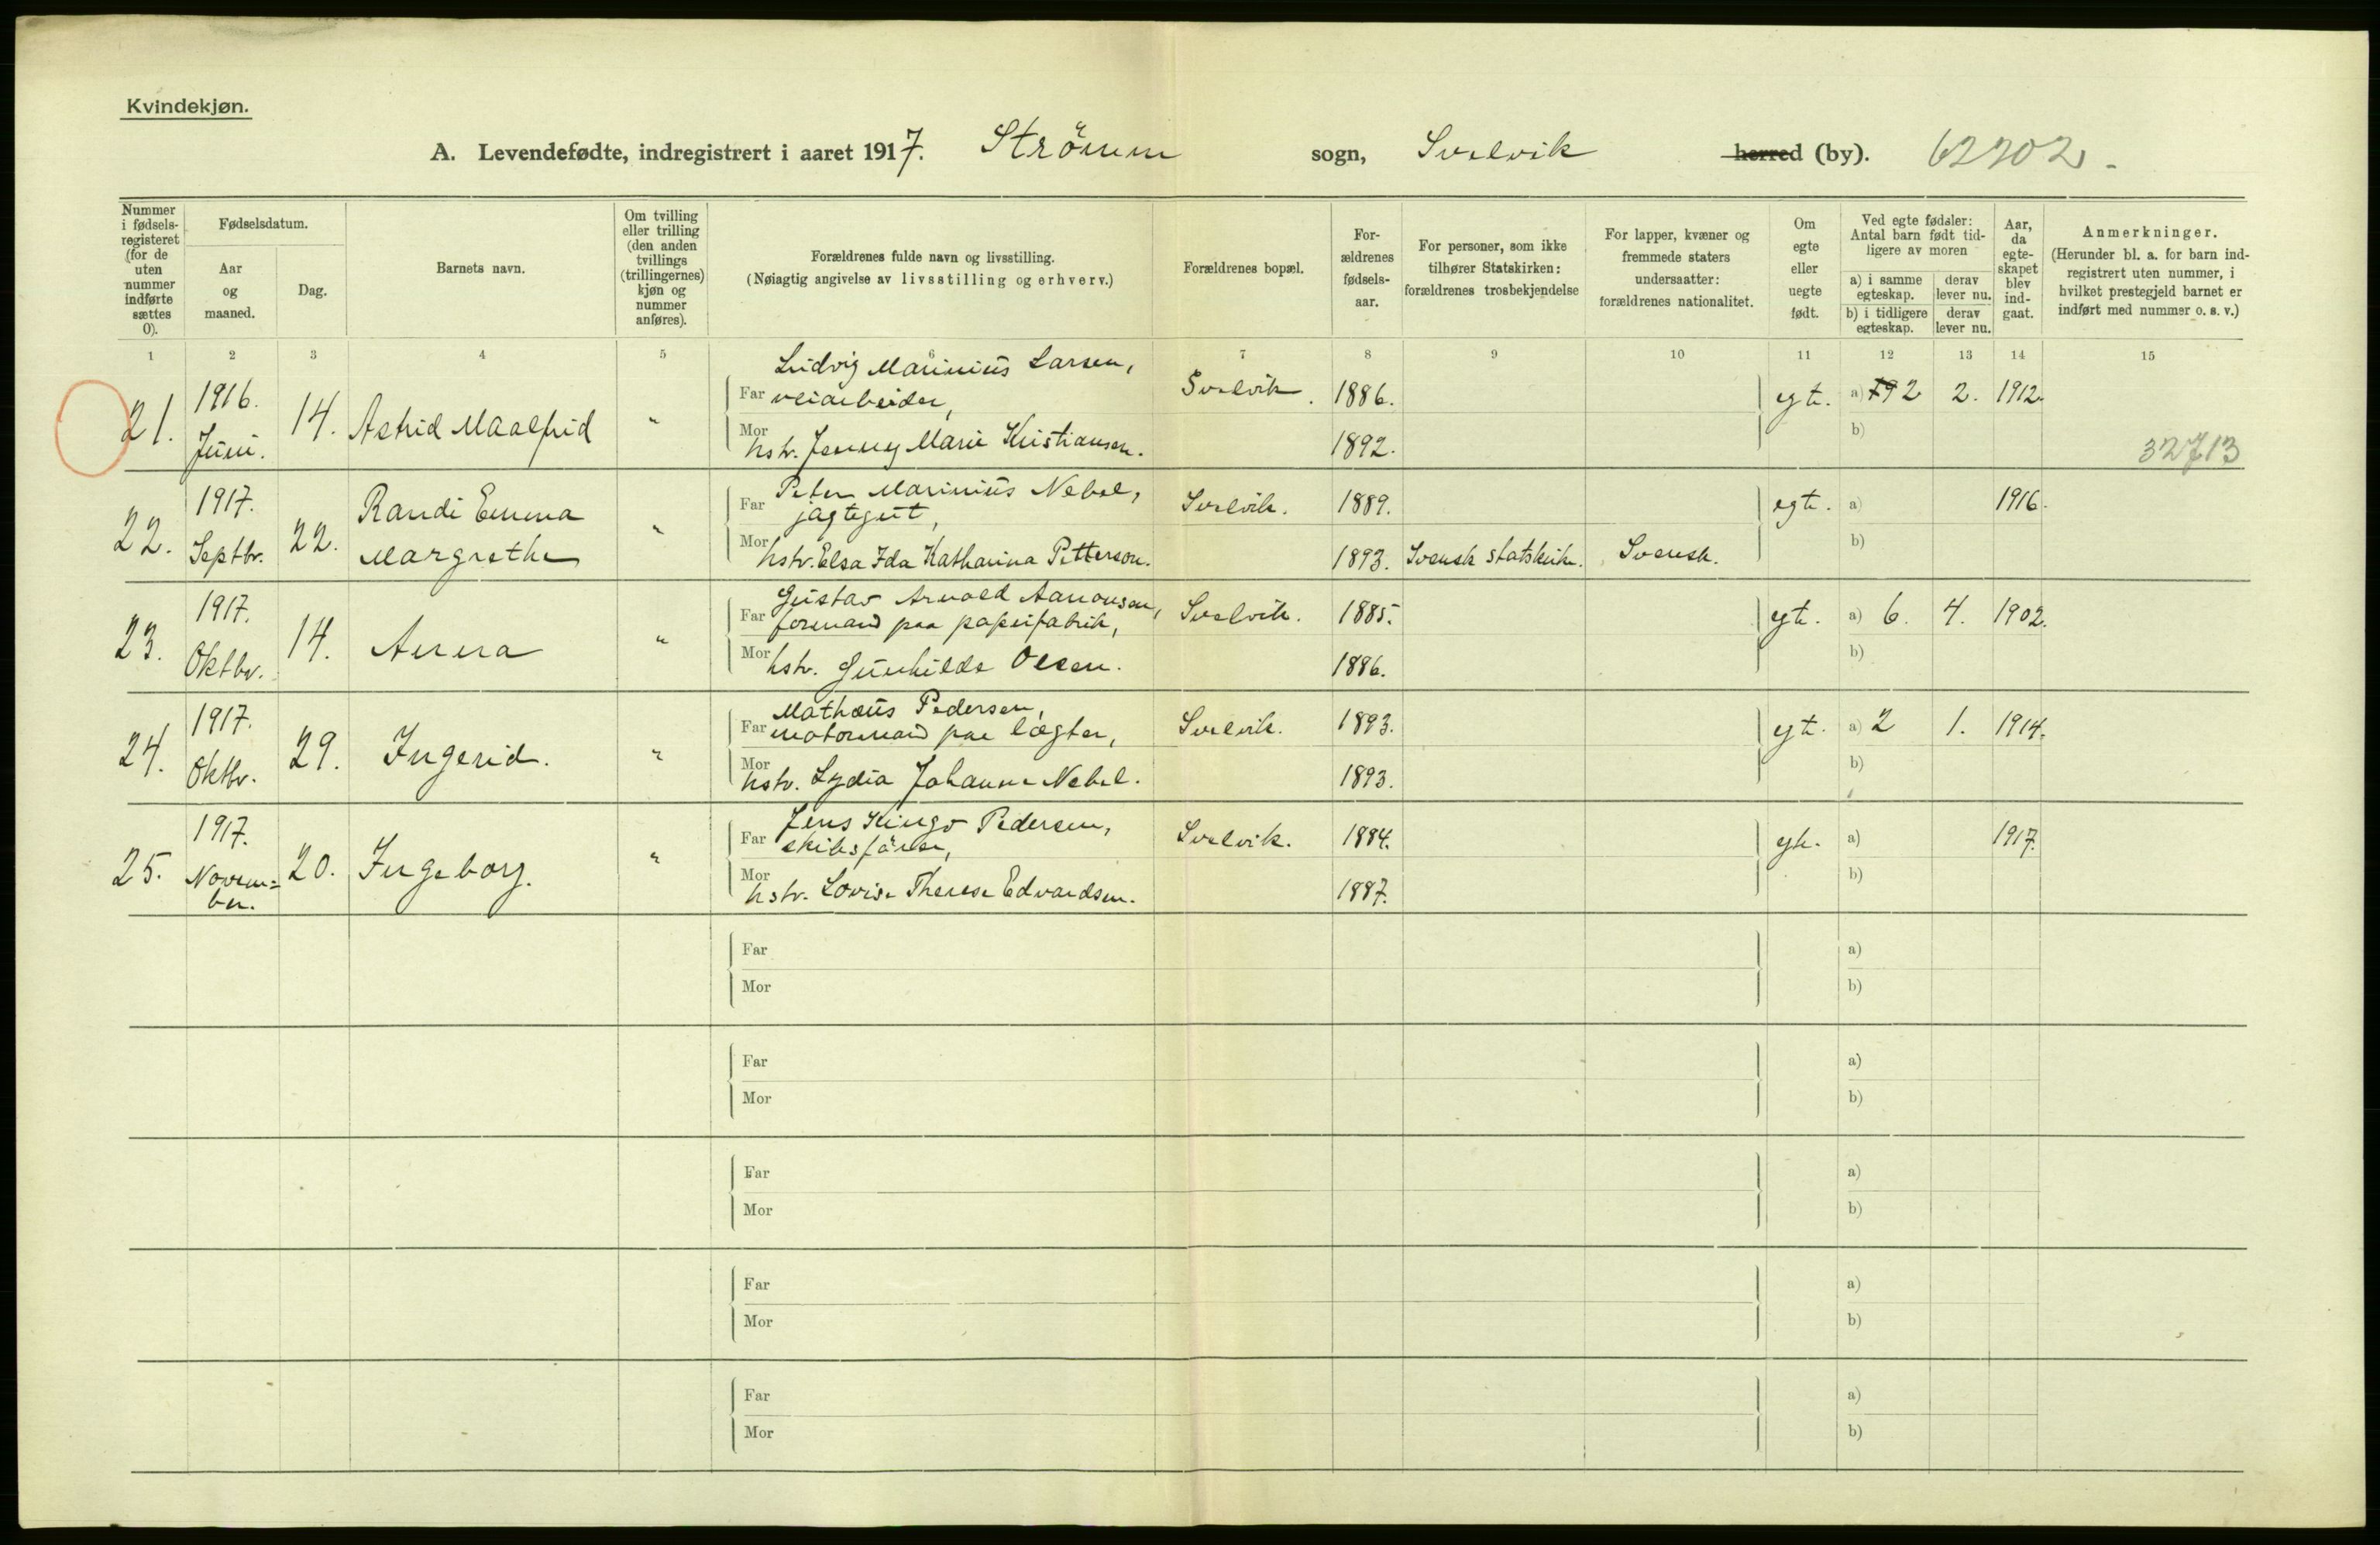 Kvindekjøn.
A. Levendefødte, indregistrert i aaret 1917. Strömm sogn, Svelvik herred (by). 62202.
Nummer i fødsels-registeret (for de uten nummer indførte sættes 0).
Fødselsdatum.
Aar og maaned.
Dag.
Barnets navn.
Om tvilling eller trilling (den anden tvillings (trillingernes) kjøn og nummer anføres).
Forældrenes fulde navn og livsstilling.
(Nøiagtig angivelse av livsstilling og erhverv.)
Forældrenes bopæl.
For-ældrenes fødsels-aar.
For personer, som ikke tilhører Statskirken: forældrenes trosbekjendelse
For lapper, kvæner og fremmede staters undersaatter: forældrenes nationalitet.
Om egte eller uegte født.
Ved egte fødsler: Antal barn født tid-ligere av moren
a) i samme egteskap. derav lever nu.
b) i tidligere egteskap. derav lever nu.
Aar, da egte-skapet blev ind-gaat.
Anmerkninger.
(Herunder bl. a. for barn ind-registrert uten nummer, i hvilket prestegjeld barnet er indført med nummer o. s. v.)
1 2 3 4 5 6 7 8 9 10 11 12 13 14 15
21. 1916. Juni. 14. Astrid Maalfrid "
Ludvig Marinius Larsen,
Far veiarbeider, Svelvik. 1886. egt. a) 2 2. 1912.
Mor hstr. Jenny Marie Kristiansen. 1892. b) 32713
22. 1917. Septbr. 22. Randi Emma Margrethe "
Peter Marinius Nebel,
Far jagtegut, Svelvik. 1889. egt. a) 1916.
Mor hstr. Elsa Ida Katharina Petterson. 1893. Svensk statskirke. Svensk. b)
23. 1917. Oktbr. 14. Anna "
Gustav Arnold Aanonsen,
Far formand paa papirfabrik, Svelvik. 1885. egt. a) 6. 4. 1902.
Mor hstr. Gunhilde Olsen. 1886. b)
24. 1917. Oktbr. 29. Ingerid. "
Mathæus Pedersen,
Far motormand paa lægter, Svelvik. 1893. egt. a) 2 1. 1914.
Mor hstr. Lydia Johanne Nebel. 1893. b)
25. 1917. Novem=ber. 20. Ingeborg. "
Jens Kingo Pedersen,
Far skibsförer, Svelvik. 1884. egt. a) 1917.
Mor hstr. Lovise Therese Edvardsen. 1887. b)
Far a)
Mor b)
Far a)
Mor b)
Far a)
Mor b)
Far a)
Mor b)
Far a)
Mor b)